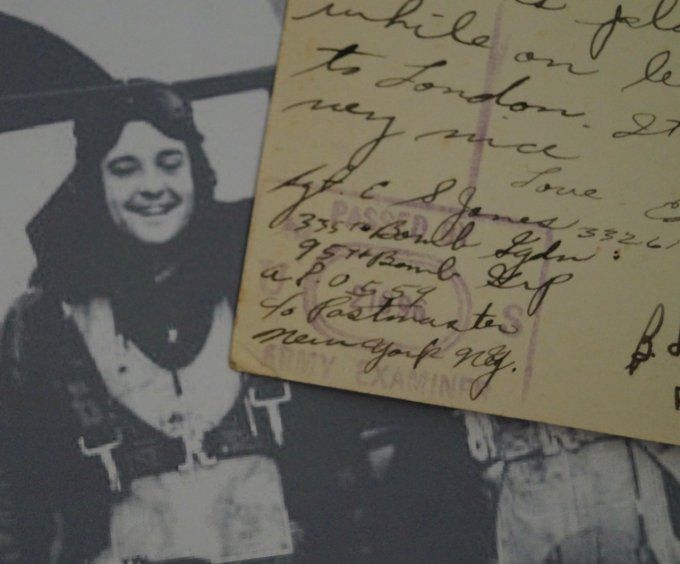 while on le
to London. It
very nice
Love
Sgt C S Jones 33261
335th Bomb Sqdn.
95th Bomb Grp
A P O 559
c/o Postmaster
New York NY.
PASSED BY
U S
ARMY EXAMINER